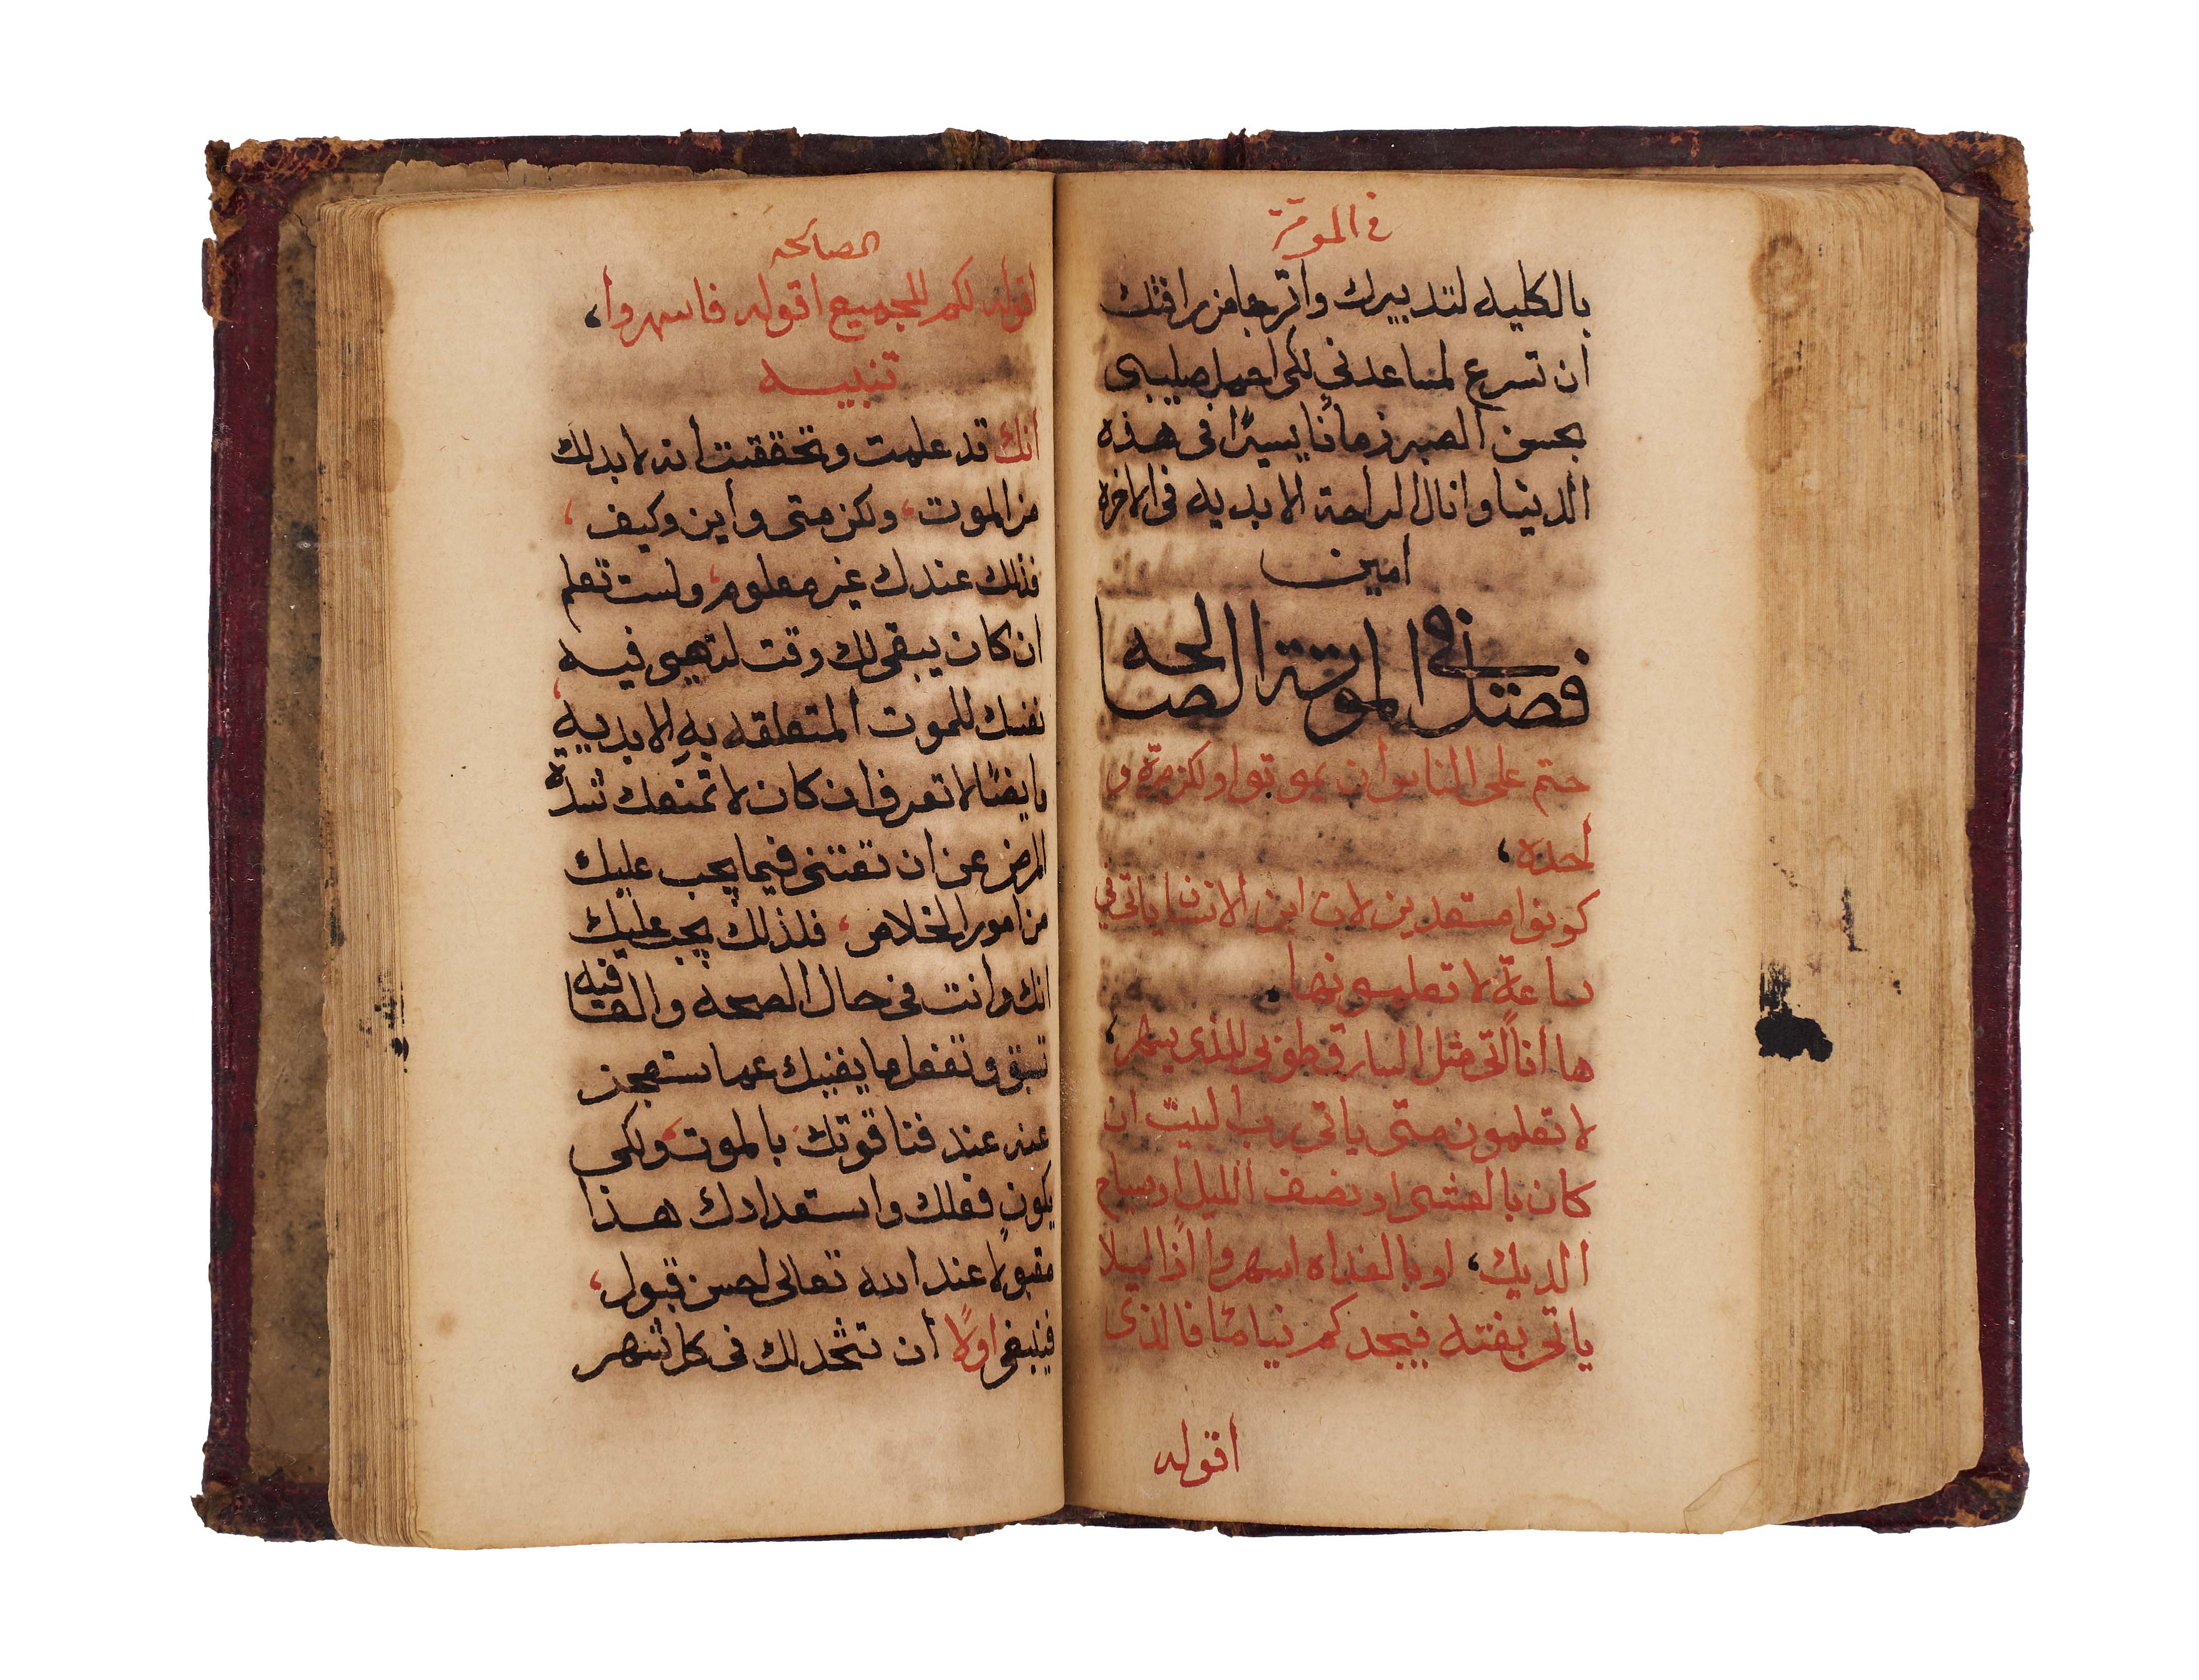 في الموتة
بالكليه لتدبيرك واترجا من رافتك
ان تسرع لمساعدتي لكي احمل صليبي
بحسن الصبر زمانًا يسيرًا في هذه
الدنيا وانال الراحة الابديه في الاخره
امين
فصل في الموتة الصالحه
حتم على الناس أن يموتوا ولكن مرّه و
احده،
كونوا مستعدين لان ابن الانسان ياتي في
ساعةٍ لا تعلمونها.
ها أنا آتي مثل السارق طوبى للذي يسهر،
لا تعلمون متى ياتي رب البيت ان
كان بالعشي او نصف الليل او صياح
الديك، او بالغداه اسهروا اذًا ليلا
ياتي بغتة فيجدكم نيامًا فالذي
اقوله
الصالحه
اقوله لكم للجميع اقوله فاسهروا،
تنبيه
انك قد علمت وتحققت أنه لا بد لك
من الموت، ولكن متى وأين وكيف،
فذلك عندك غير معلوم، ولست تعلم
ان كان يبقى لك وقت لتهيى فيه
نفسك للموت المتعلقه به الابديه،
وايضًا لا تعرف ان كان لا تمنعك شدة
المرض عن ان تعتني فيما يجب عليك
من امور الخلاص، فلذلك يجب عليك
انك وانت في حال الصحه والعافيه
تسبق وتفعل ما يغنيك عما ستعجز
عنه عند فنا قوتك بالموت، ولكي
يكون فعلك واستعدادك هذا
مقبولًا عند الله تعالى احسن قبول،
فينبغي اولًا أن تتخذ لك في كل شهر